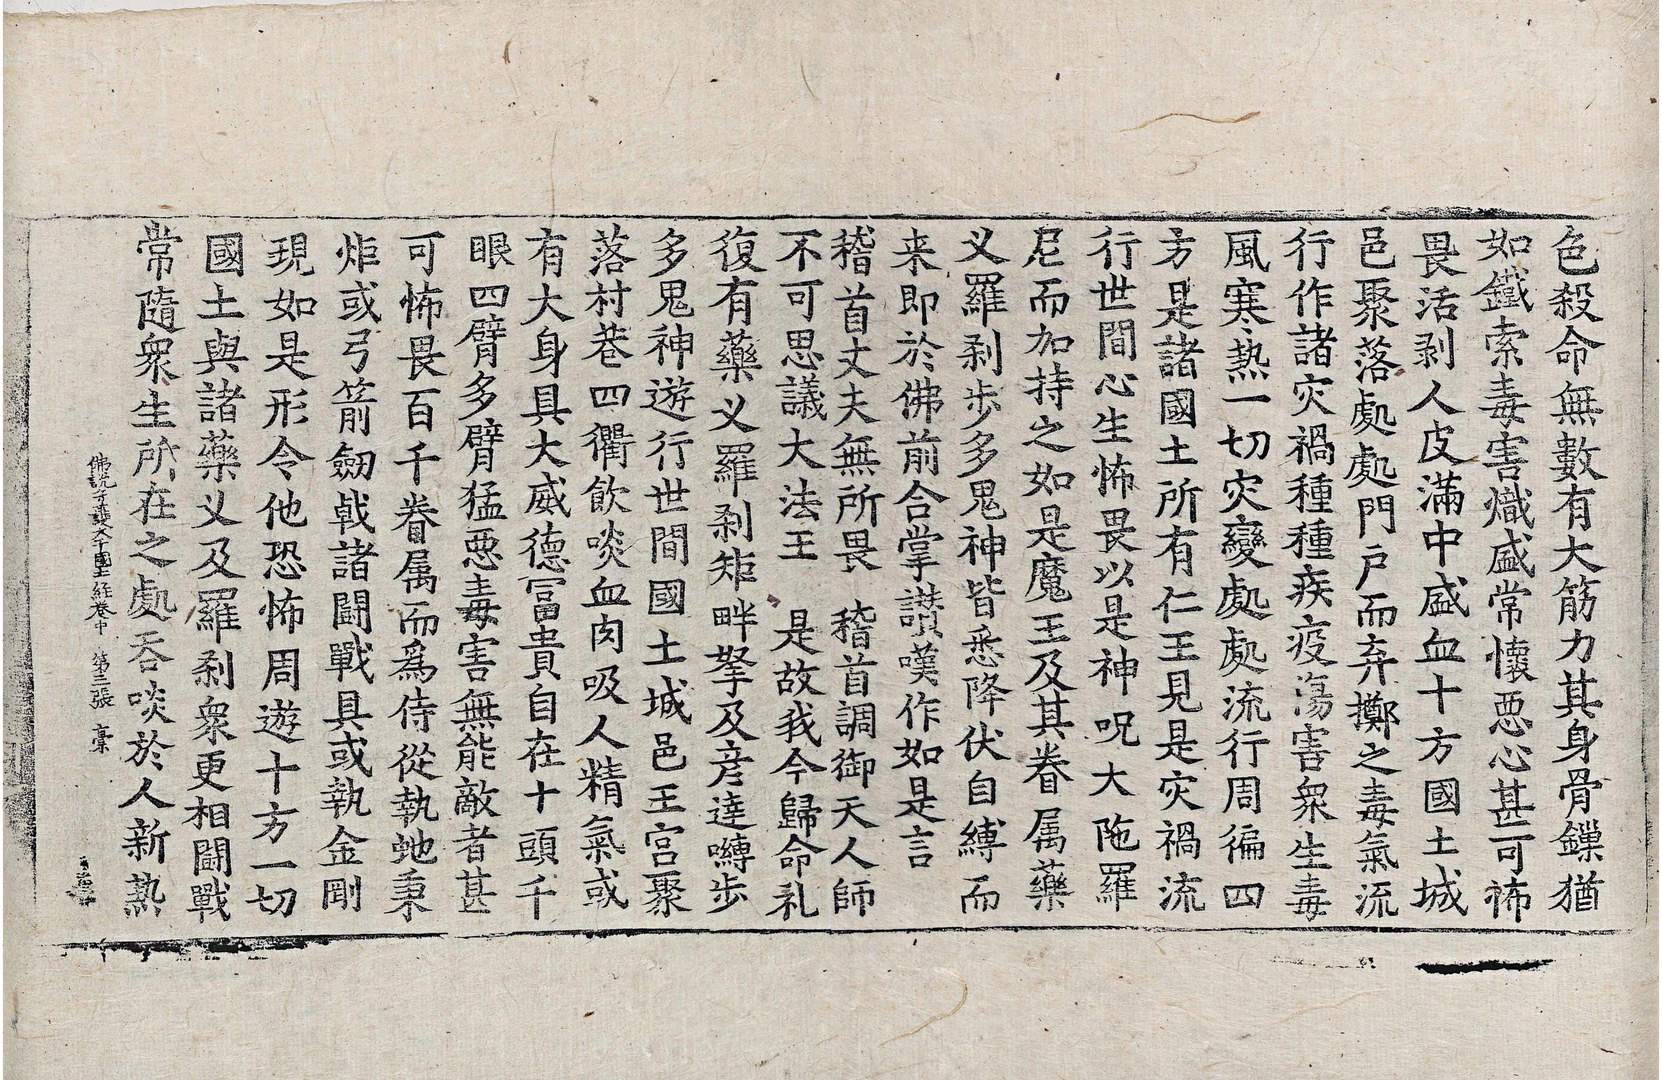 色殺命無數有大筋力其身骨鏁猶
如鐵索毒害熾盛常懷惡心甚可怖
畏活剥人皮滿中盛血十方國土城
邑聚落處處門戶而弃擲之毒氣流
行作諸灾禍種種疾疫瘍害衆生毒
風寒熱一切灾變處處流行周徧四
方是諸國土所有仁王見是灾禍流
行世間心生怖畏以是神呪大陁羅
尼而加持之如是魔王及其眷属藥
义羅剎步多鬼神皆悉降伏自縛而
来即於佛前合掌讃嘆作如是言
稽首丈夫無所畏 稽首調御天人師
不可思議大法王 是故我今歸命礼
復有藥义羅剎矩畔拏及彦達嚩步
多鬼神遊行世間國土城邑王宮聚
落村巷四衢飲啖血肉吸人精氣或
有大身具大威德冨貴自在十頭千
眼四臂多臂猛惡毒害無能敵者甚
可怖畏百千眷属而為侍從執虵秉
炬或弓箭劒戟諸闘戰具或執金剛
現如是形令他恐怖周遊十方一切
國土與諸藥义及羅剎衆更相闘戰
常隨衆生所在之處吞啖於人新熱
佛說守護大千國土經卷中 第三張 槀